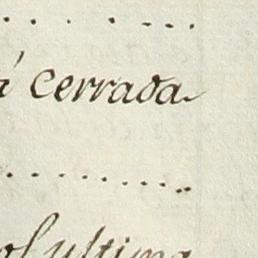 á cerrada
ol ultima